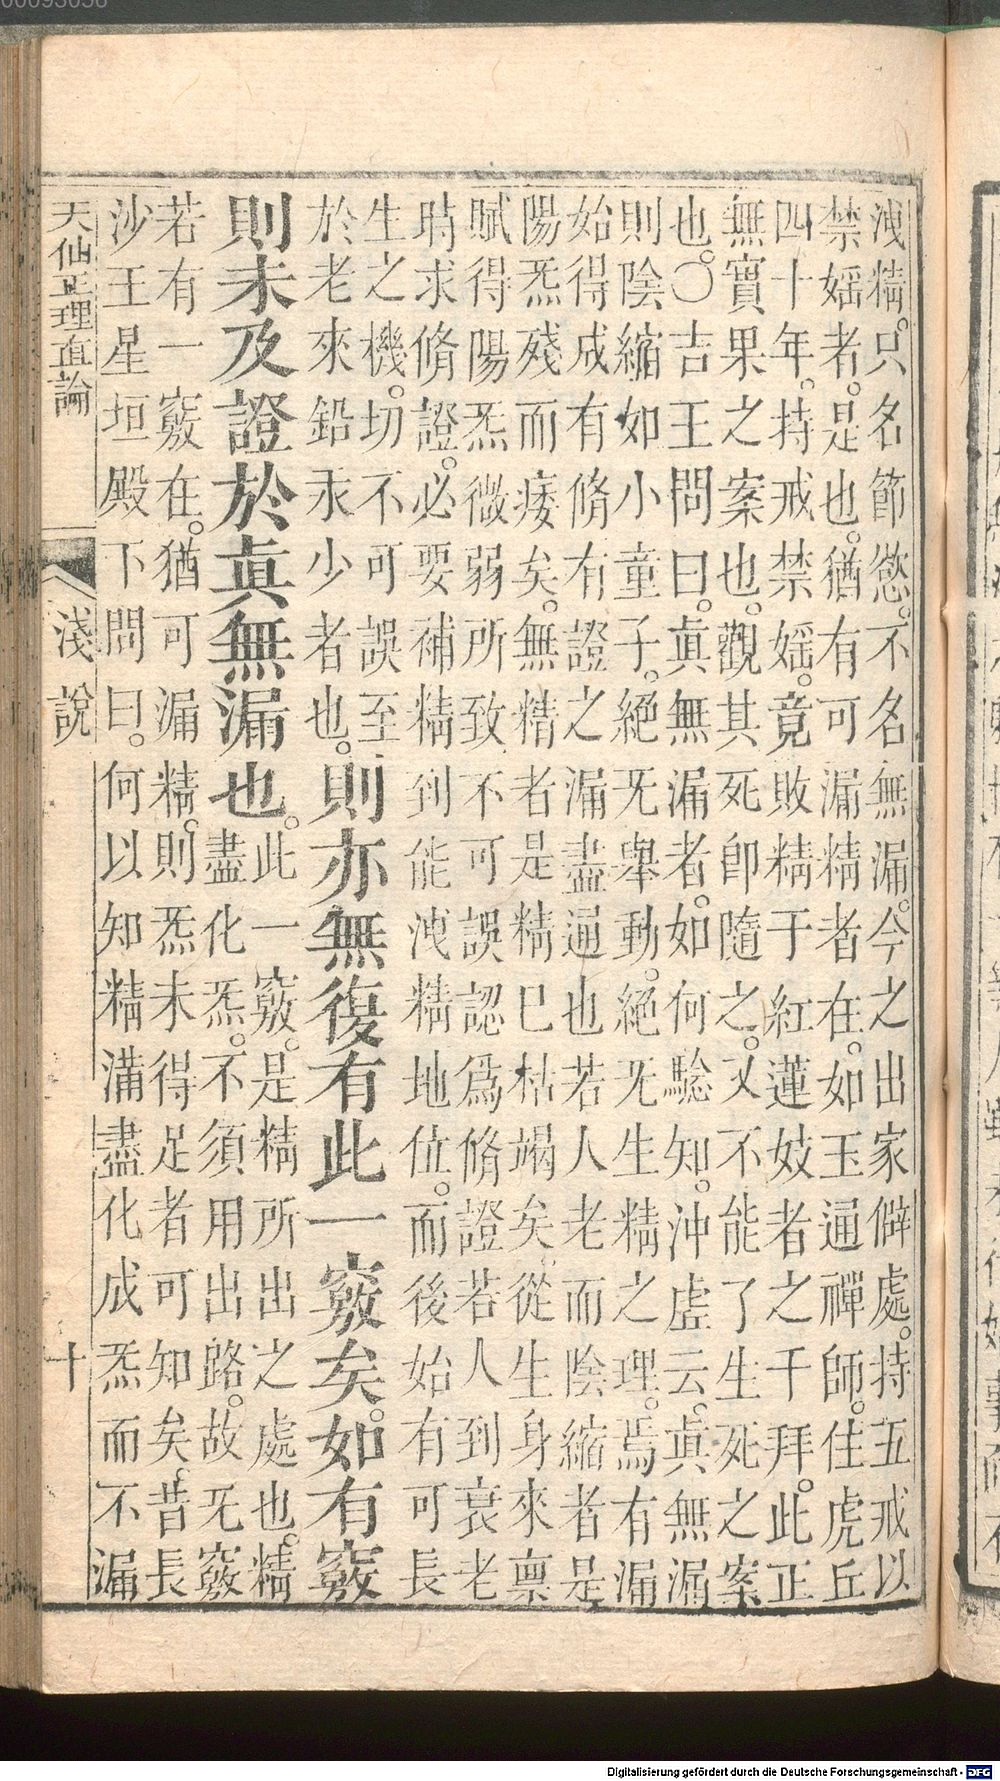 洩精。只名節慾。不名無漏。今之出家僻處。持五戒以
禁婬者。是也。猶有可漏精者在。如玉通禪師。住虎丘
四十年。持戒禁婬。竟敗精于紅蓮妓者之千拜。此正
無實果之案也。觀其死卽隨之。又不能了生死之案
也。○吉王問曰。眞無漏者。如何驗知。沖虛云。眞無漏
則陰縮如小童子。絕旡舉動。絕旡生精之理。焉有漏
始得成有脩有證之漏盡通也若人老而陰縮者是
陽炁殘而痿矣。無精者是精巳枯竭矣。從生身來禀
賦得陽炁微弱所致不可誤認爲脩證若人到衰老
時求脩證。必要補精到能洩精地位。而後始有可長
生之機。切不可誤至
於老來鉛汞少者也。則亦無復有此一竅矣。如有竅
則未及證於眞無漏也。此一竅。是精所出之處也。精
盡化炁。不須用出路。故旡竅
若有一竅在。猶可漏精。則炁未得足者可知矣。昔長
沙王星垣殿下問曰。何以知精滿盡化成炁而不漏
天仙正理直論
淺說
十
Digitalisierung gefördert durch die Deutsche Forschungsgemeinschaft - DFG